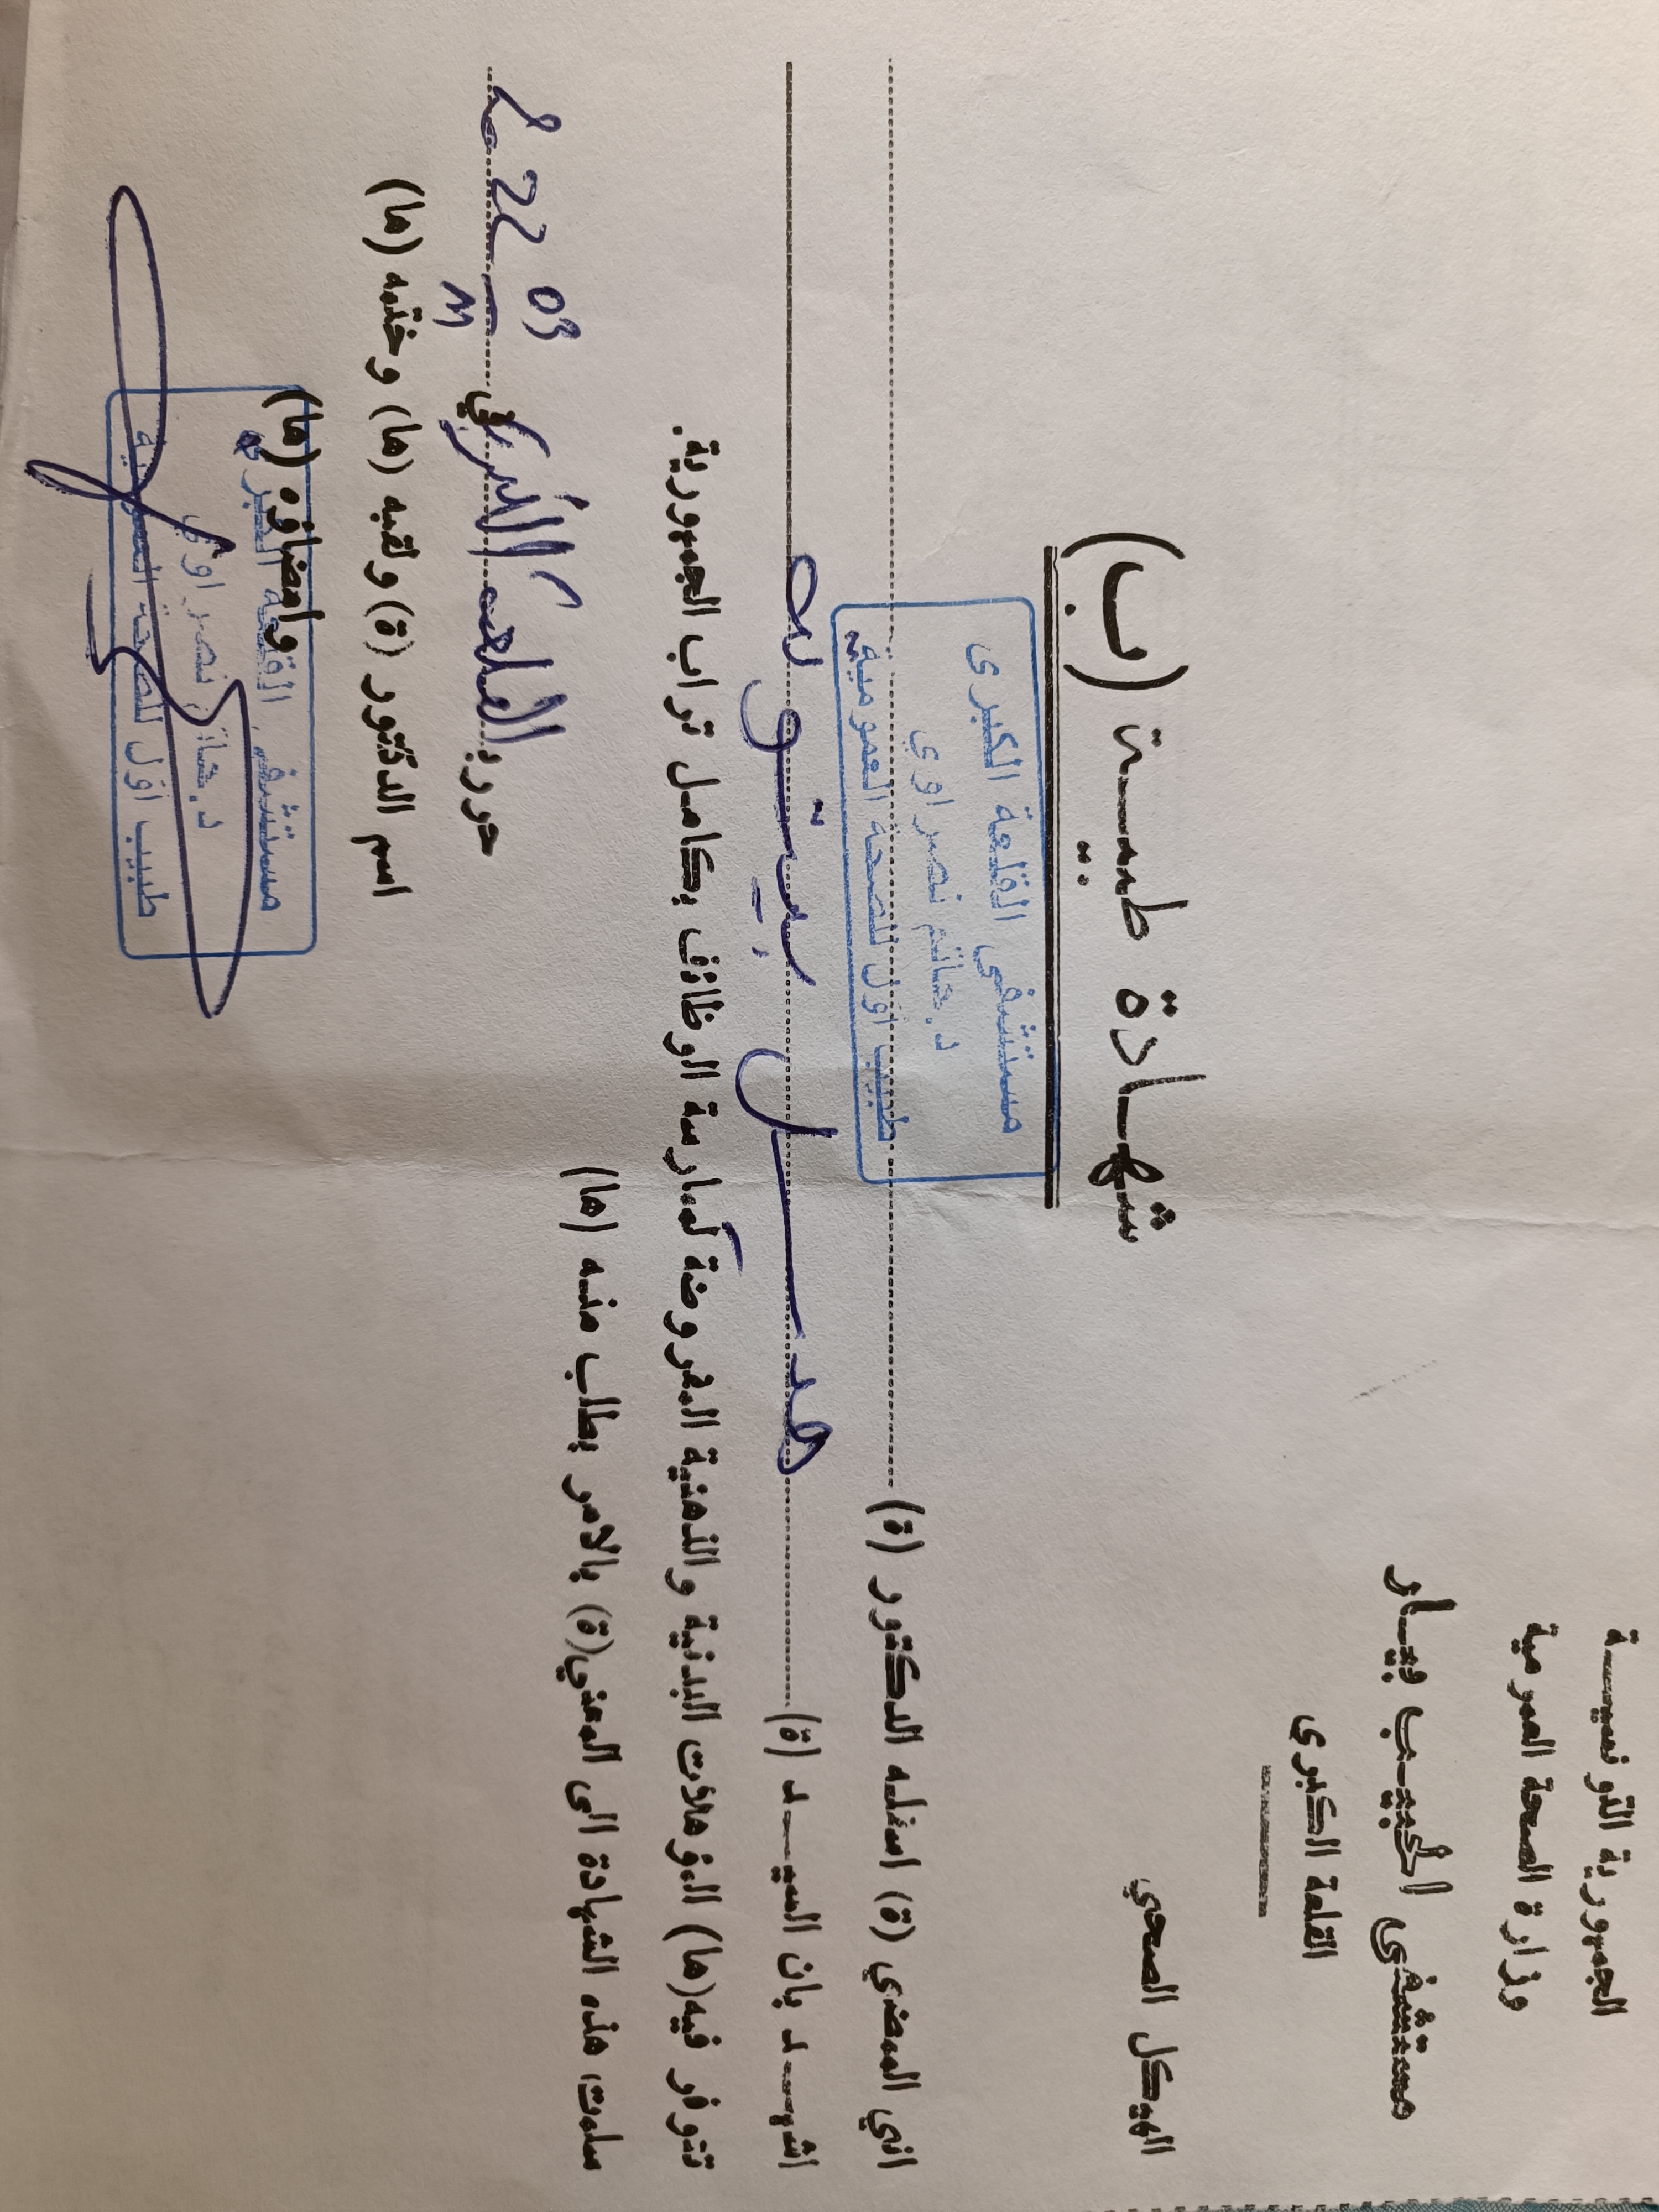 الجمهورية التونسيـــة
وزارة الصحة العمومية
مستشفى الحبيب بيار
القلعة الكبرى
الهيكل الصحي
شهـــادة طبيـــة (ب)
مستشفى القلعة الكبرى
د. حاتم نصراوي
طبيب أول للصحة العمومية
اني الممضي (ة) اسفله الدكتور (ة)
اشهــد بان السيــد (ة)
تتوفر فيه(ها) المؤهلات البدنية والذهنية المفروضة لممارسة الوظائف بكامل تراب الجمهورية.
سلمت هذه الشهادة الى المعني(ة) بالامر بطلب منه (ها)
حرر بـ القلعة الكبرى في
اسم الدكتور (ة) ولقبه (ها) وختمه (ها)
وامضاؤه (ها)
مستشفى القلعة الكبرى
د. حاتم نصراوي
طبيب أول للصحة العمومية